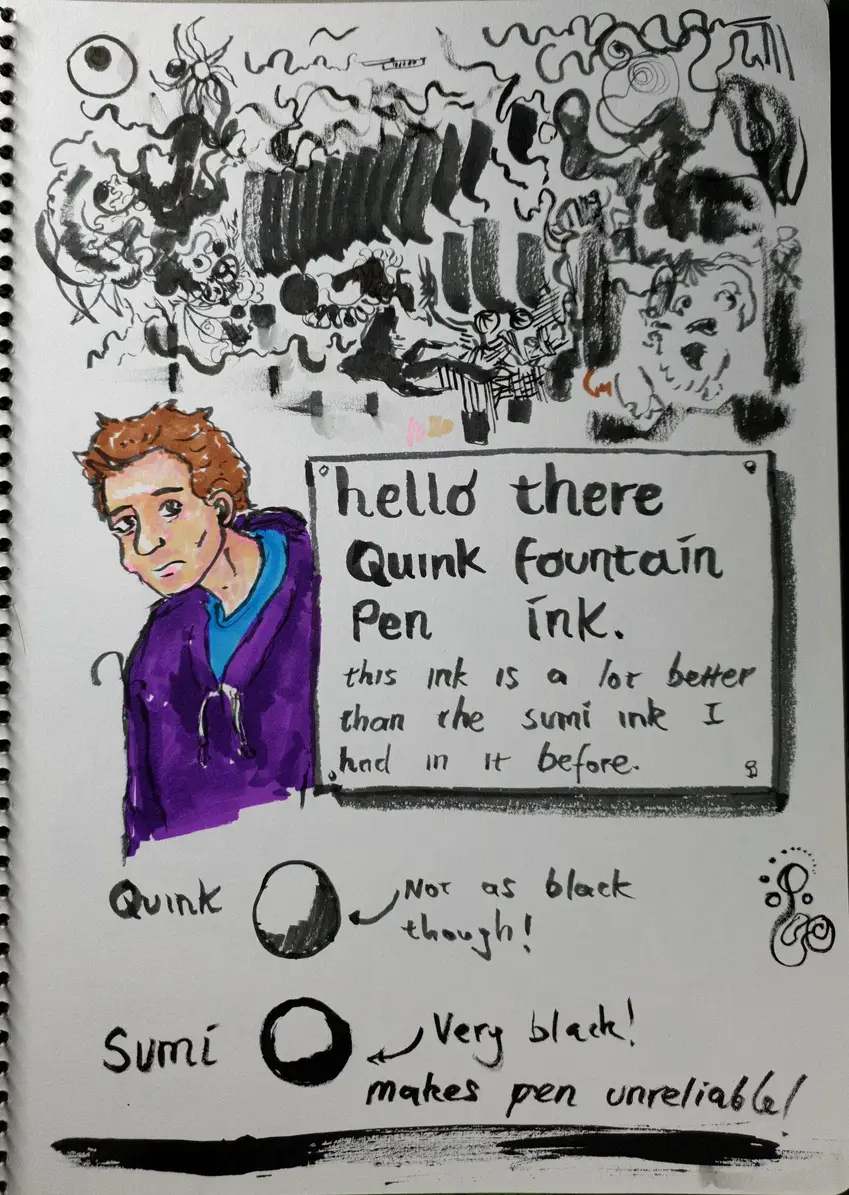 hello there
Quink fountain
Pen ink.
this ink is a lot better
than the sumi ink I
had in it before.
Quink
Not as black
though!
Sumi
Very black!
makes pen unreliable!